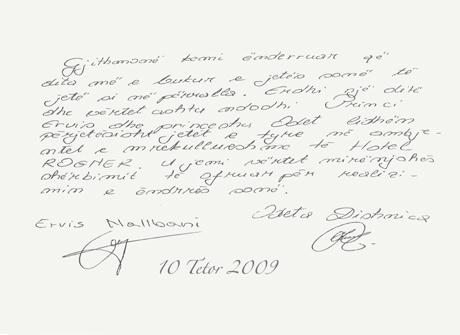 Gjithmonë kemi ëndërruar që
dita më e bukur e jetës sonë të
jetë si në përralla. Erdhi një ditë
dhe vërtet ashtu ndodhi Princi
Ervis dhe princesha Odet lidhëm
përjetësisht jetët e tyre në ambje-
ntet e mrekullueshme të Hotel
ROGNER. U jemi vërtet mirënjohës
shërbimit të ofruar për realizi-
min e ëndrrës sonë.
Ervis Nallbani
Odeta Dishnica
10 Tetor 2009